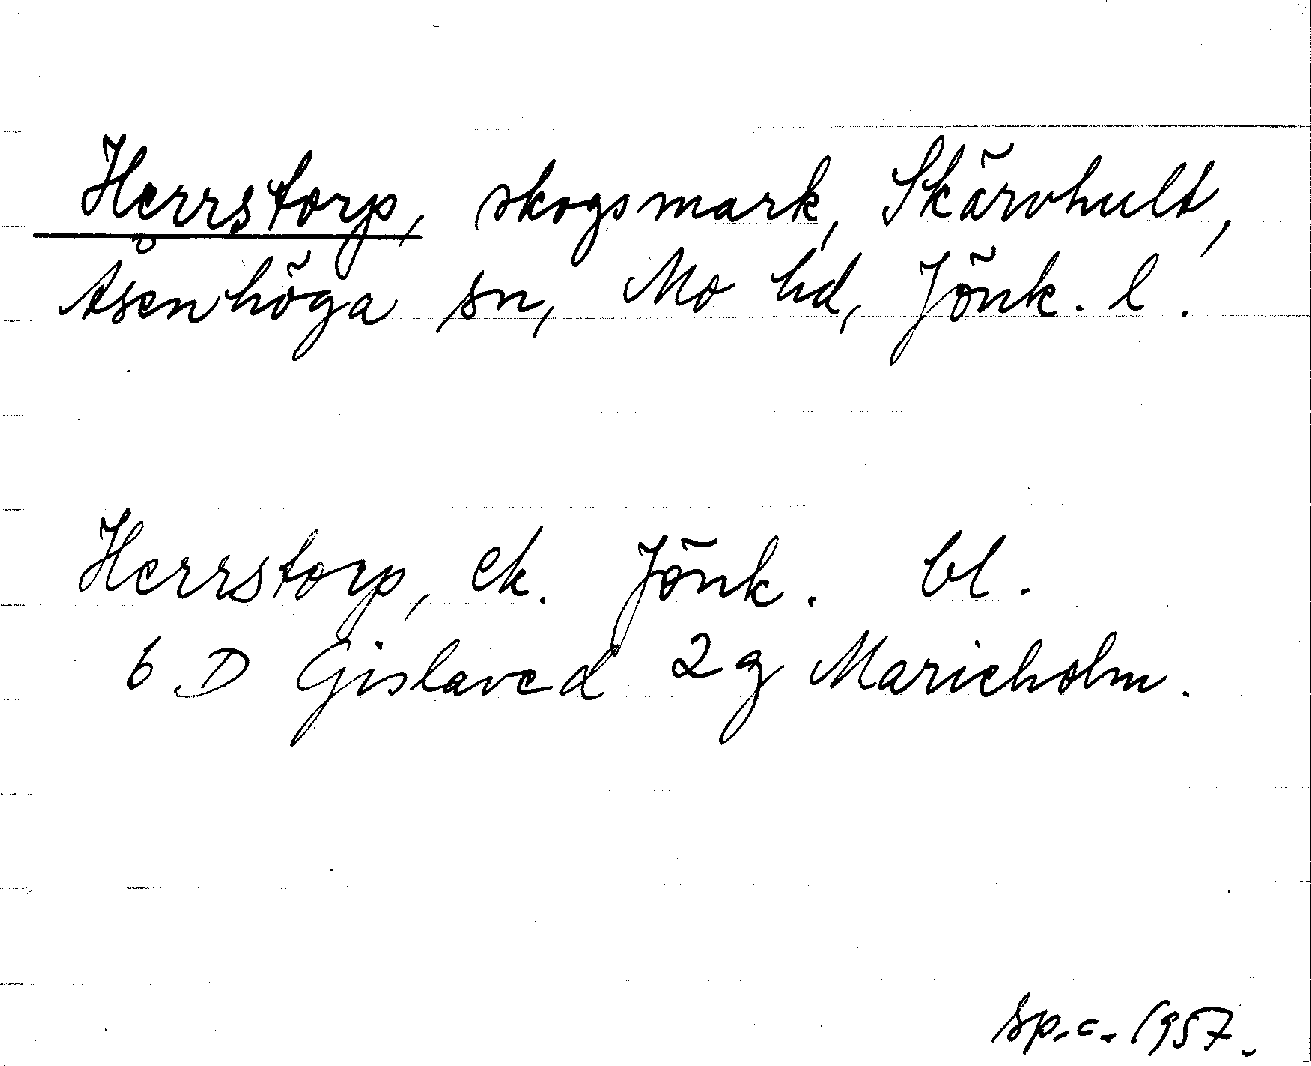 Herrstorp, skogsmark, Skärvhult,
Åsenhöga sn, Mo hd, Jönk. l.
Herrstorp, ek. Jönk. bl.
6 D Gislaved 2 g Marieholm.
Sp.c. 1957.